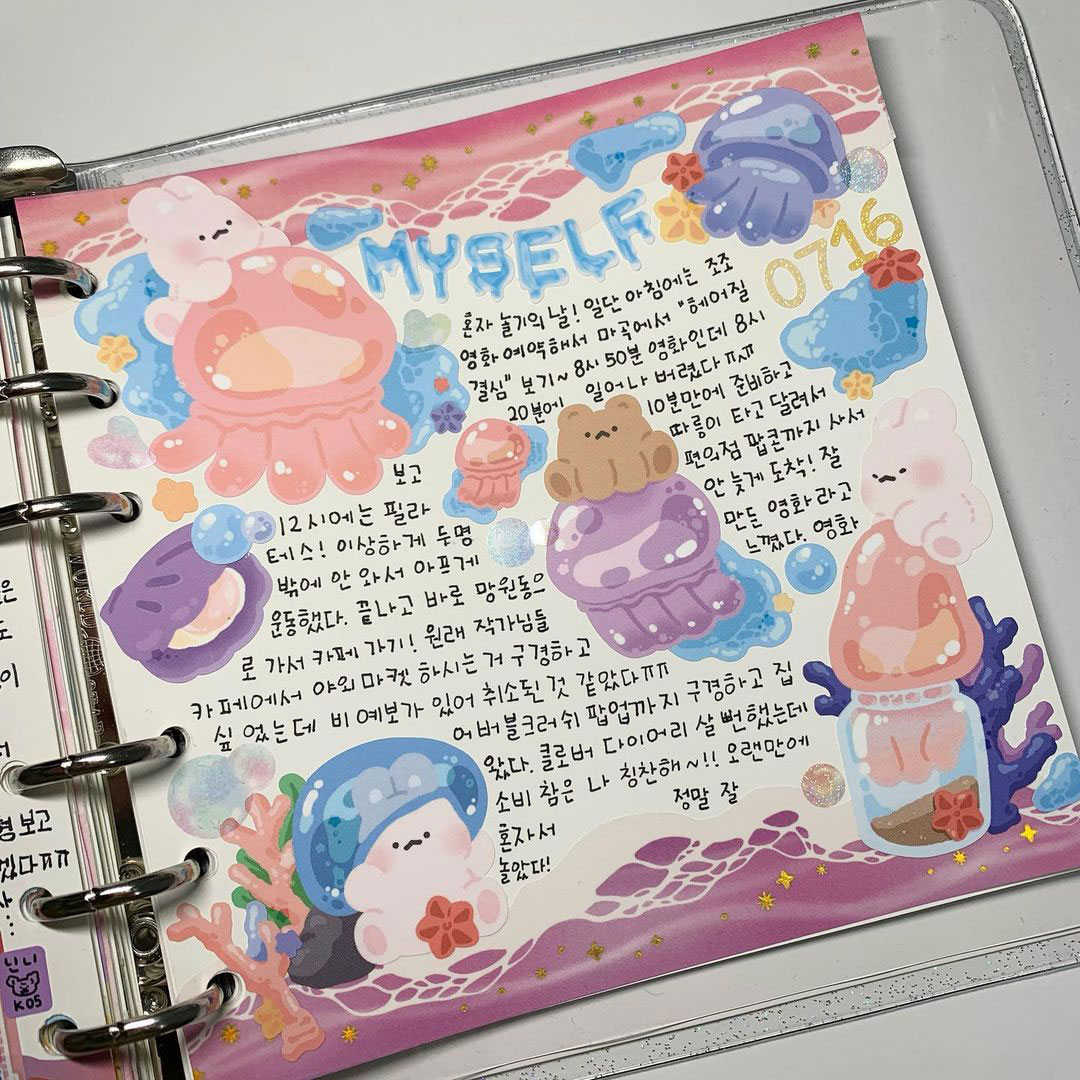 MYSELF
0716
혼자 놀기의 날! 일단 아침에는 조조
영화 예약해서 마곡에서 "헤어질
결심" 보기~ 8시 50분 영화인데 8시
20분에 일어나 버렸다ㅠㅠ
10분만에 준비하고
따릉이 타고 달려서
편의점 팝콘까지 사서
안 늦게 도착! 잘
만든 영화라고
느꼈다. 영화
보고
12시에는 필라
테스! 이상하게 두명
밖에 안 와서 아프게
운동했다. 끝나고 바로 망원동으
로 가서 카페 가기! 원래 작가님들
카페에서 야외 마켓 하시는 거 구경하고
싶었는데 비 예보가 있어 취소된 것 같았다ㅠㅠ
어버블크러쉬 팝업까지 구경하고 집
왔다. 클로버 다이어리 살 뻔 했는데
소비 참은 나 칭찬해~!! 오랜만에
정말 잘
혼자서
놀았다!
형 보고
겠다ㅠㅠ
닌니
K05
WORLD